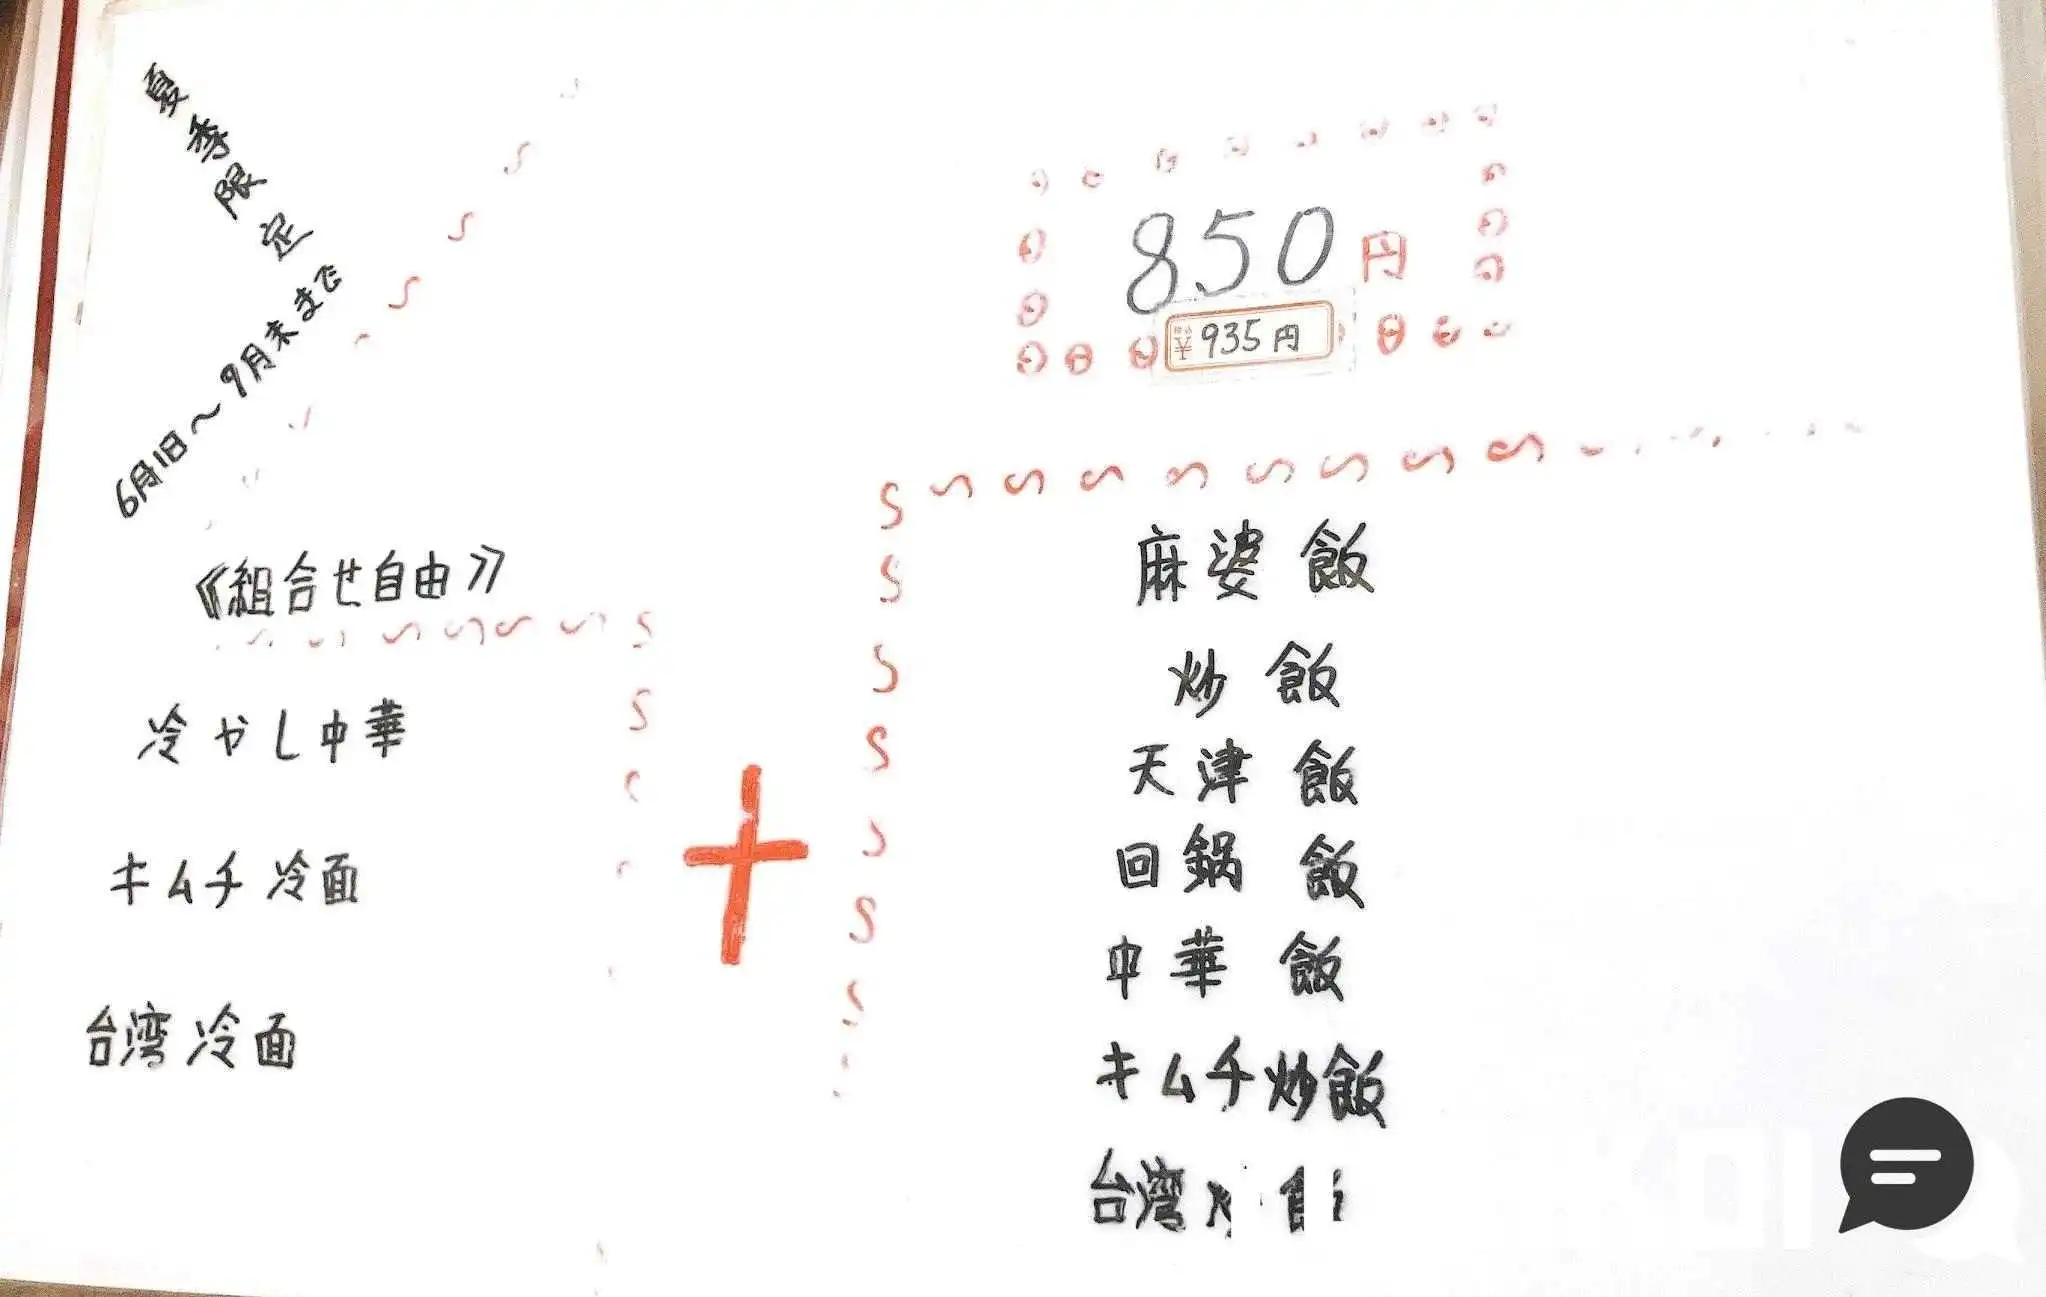 夏季限定
6月1日〜9月末まで
850円
税込
935円
《組合せ自由》
冷やし中華
キムチ冷面
台湾冷面
+
麻婆飯
炒飯
天津飯
回鍋飯
中華飯
キムチ炒飯
台湾